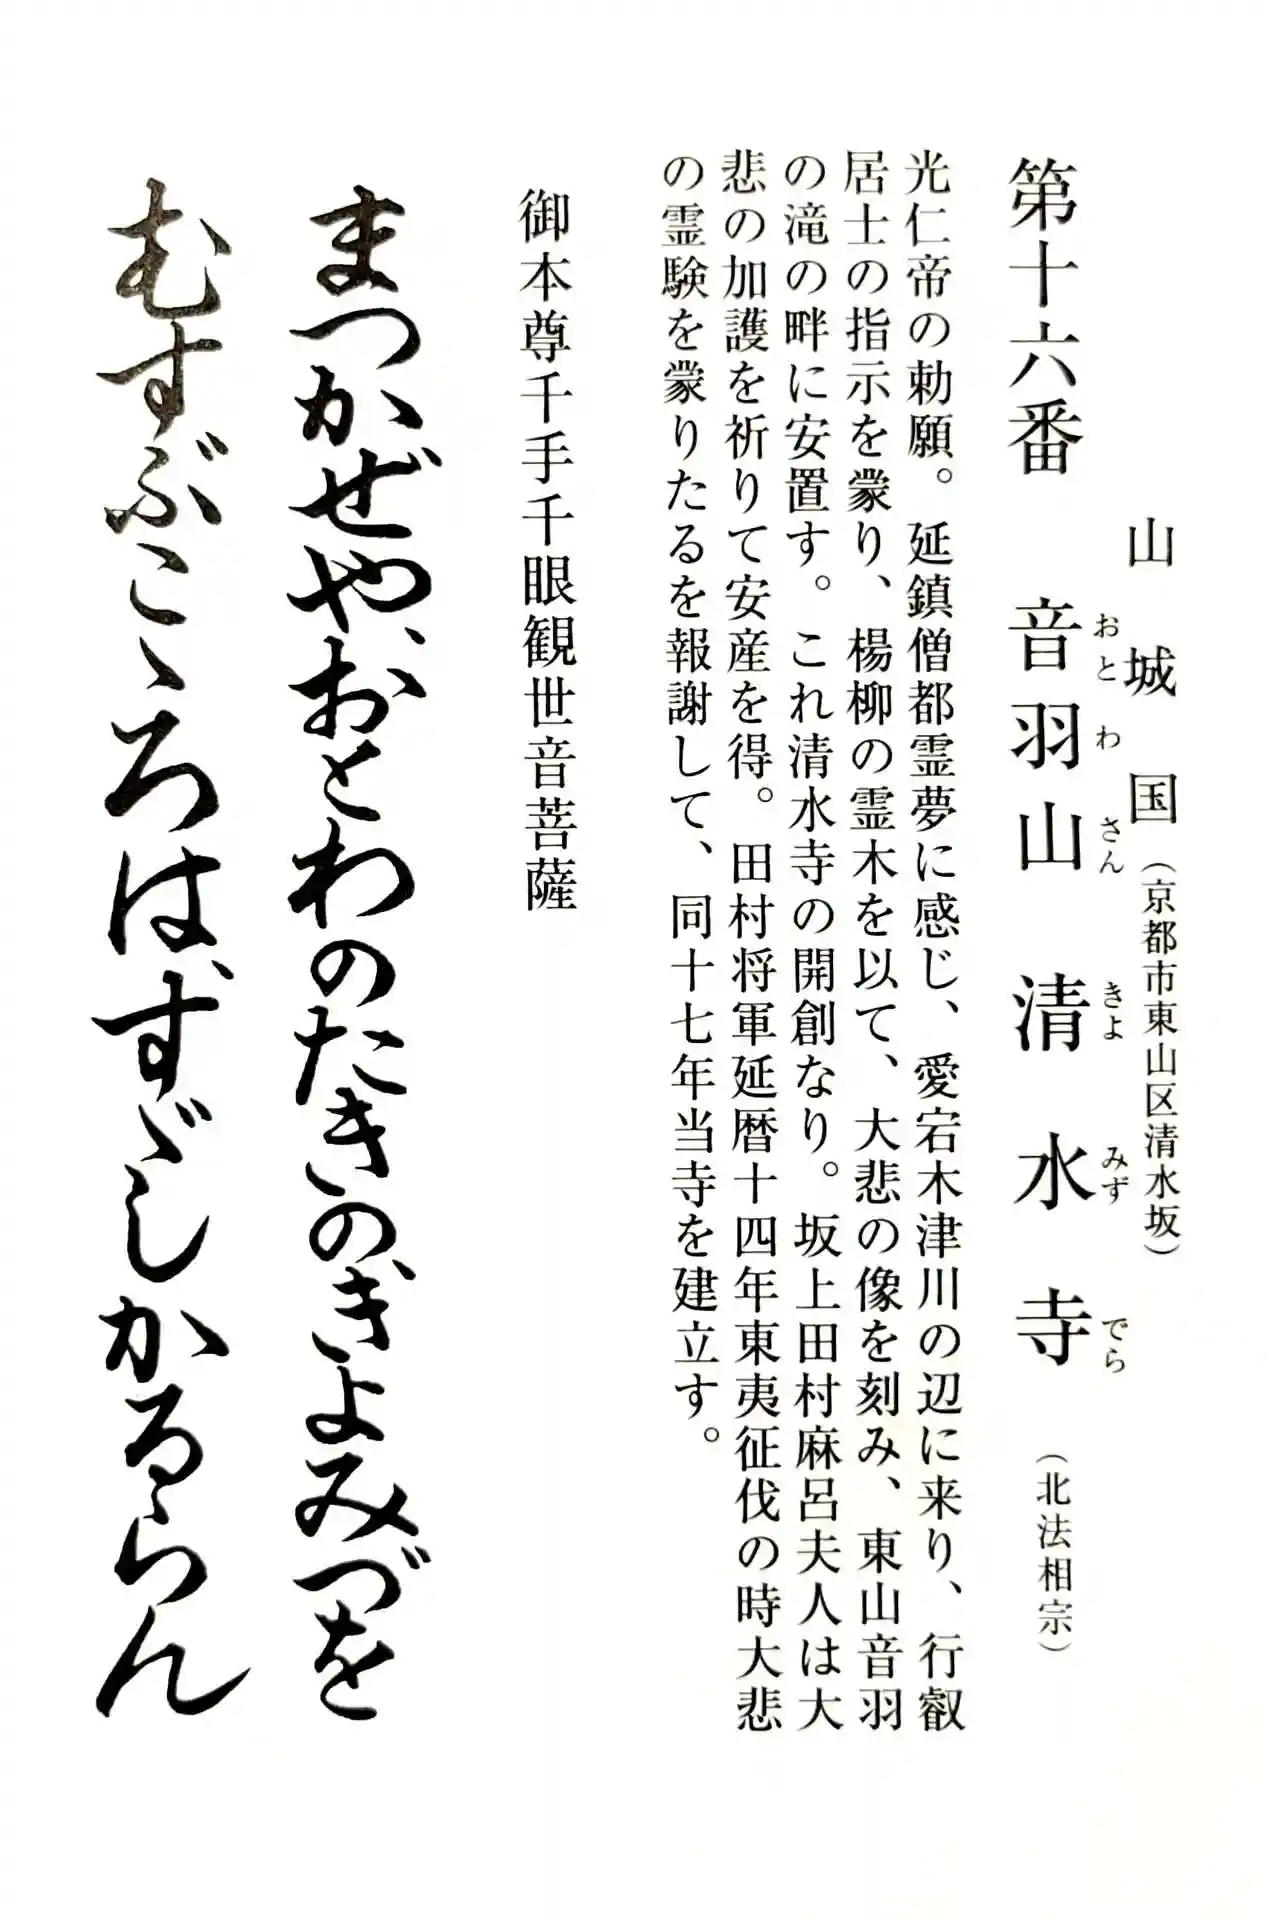 山城国（京都市東山区清水坂）
第十六番　音羽山　清水寺（北法相宗）
おとわさん　きよみずでら
光仁帝の勅願。延鎮僧都霊夢に感じ、愛宕木津川の辺に来り、行叡
居士の指示を蒙り、楊柳の霊木を以て、大悲の像を刻み、東山音羽
の滝の畔に安置す。これ清水寺の開創なり。坂上田村麻呂夫人は大
悲の加護を祈りて安産を得。田村将軍延暦十四年東夷征伐の時大悲
の霊験を蒙りたるを報謝して、同十七年当寺を建立す。
御本尊千手千眼観世音菩薩
まつかぜや、おとわのたきのきよみづを
むすぶこゝろはすゞしかるらん